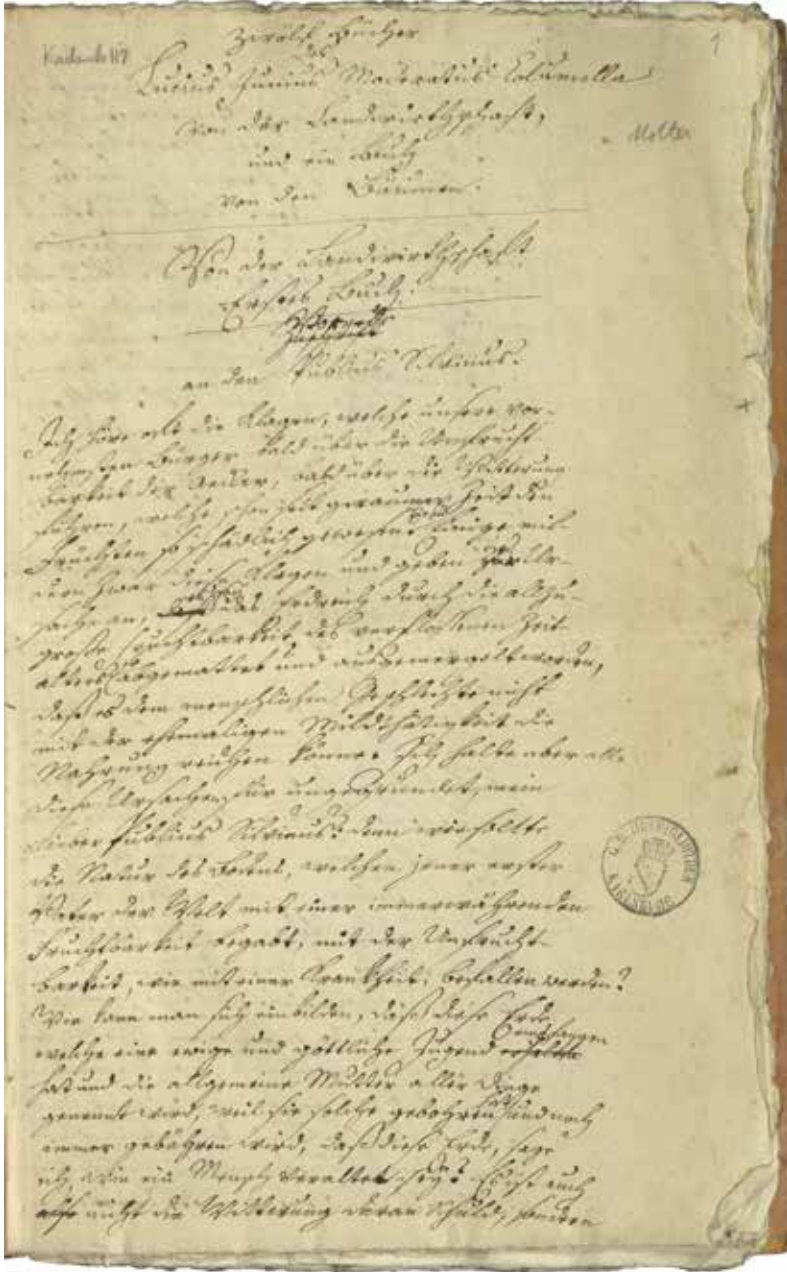 Karlsruhe 117
1
Zwölf Bücher
des
Lucius Junius Moderatus Columella
von der Landwirthschaft,
Molter
und ein Buch
von den Bäumen.
Von der Landwirthschaft
Erstes Buch.
an den Publius Silvinus.
Ich höre oft die Klagen, welche unsere vor-
nehmsten Bürger bald über die Unfrucht-
barkeit der Aecker, bald über die Witterung
führen, welche schon seit geraumer Zeit den
Früchten so schädlich gewesen. Einige mil-
dern zwar diese Klagen und geben zur Ur-
sache an, das Erdreich durch die allzu-
große Fruchtbarkeit des verflossenen Zeit-
alters abgemattet und ausgemergelt worden,
daß es dem menschlichen Geschlechte nicht
mit der ehemaligen Mildthätigkeit die
Nahrung reichen könne. Ich halte aber all-
diese Ursachen für ungegründet, mein
lieber Publius Silvinus: denn wie sollte
die Natur des Bodens, welchen jener erster
Vater der Welt mit einer immerwährenden
Fruchtbarkeit begabt, mit der Unfrucht-
barkeit, wie mit einer Krankheit, befallen werden?
Wie kann man sich einbilden, daß diese Erde,
welche eine ewige und göttliche Jugend empfangen
hat und die allgemeine Mutter aller Dinge
genennt wird, weil sie solche gebohren hat und noch
immer gebähren wird, daß diese Erde, sage
ich, wie ein Mensch veraltet sey? Es ist auch
nicht die Witterung daran Schuld, sondern